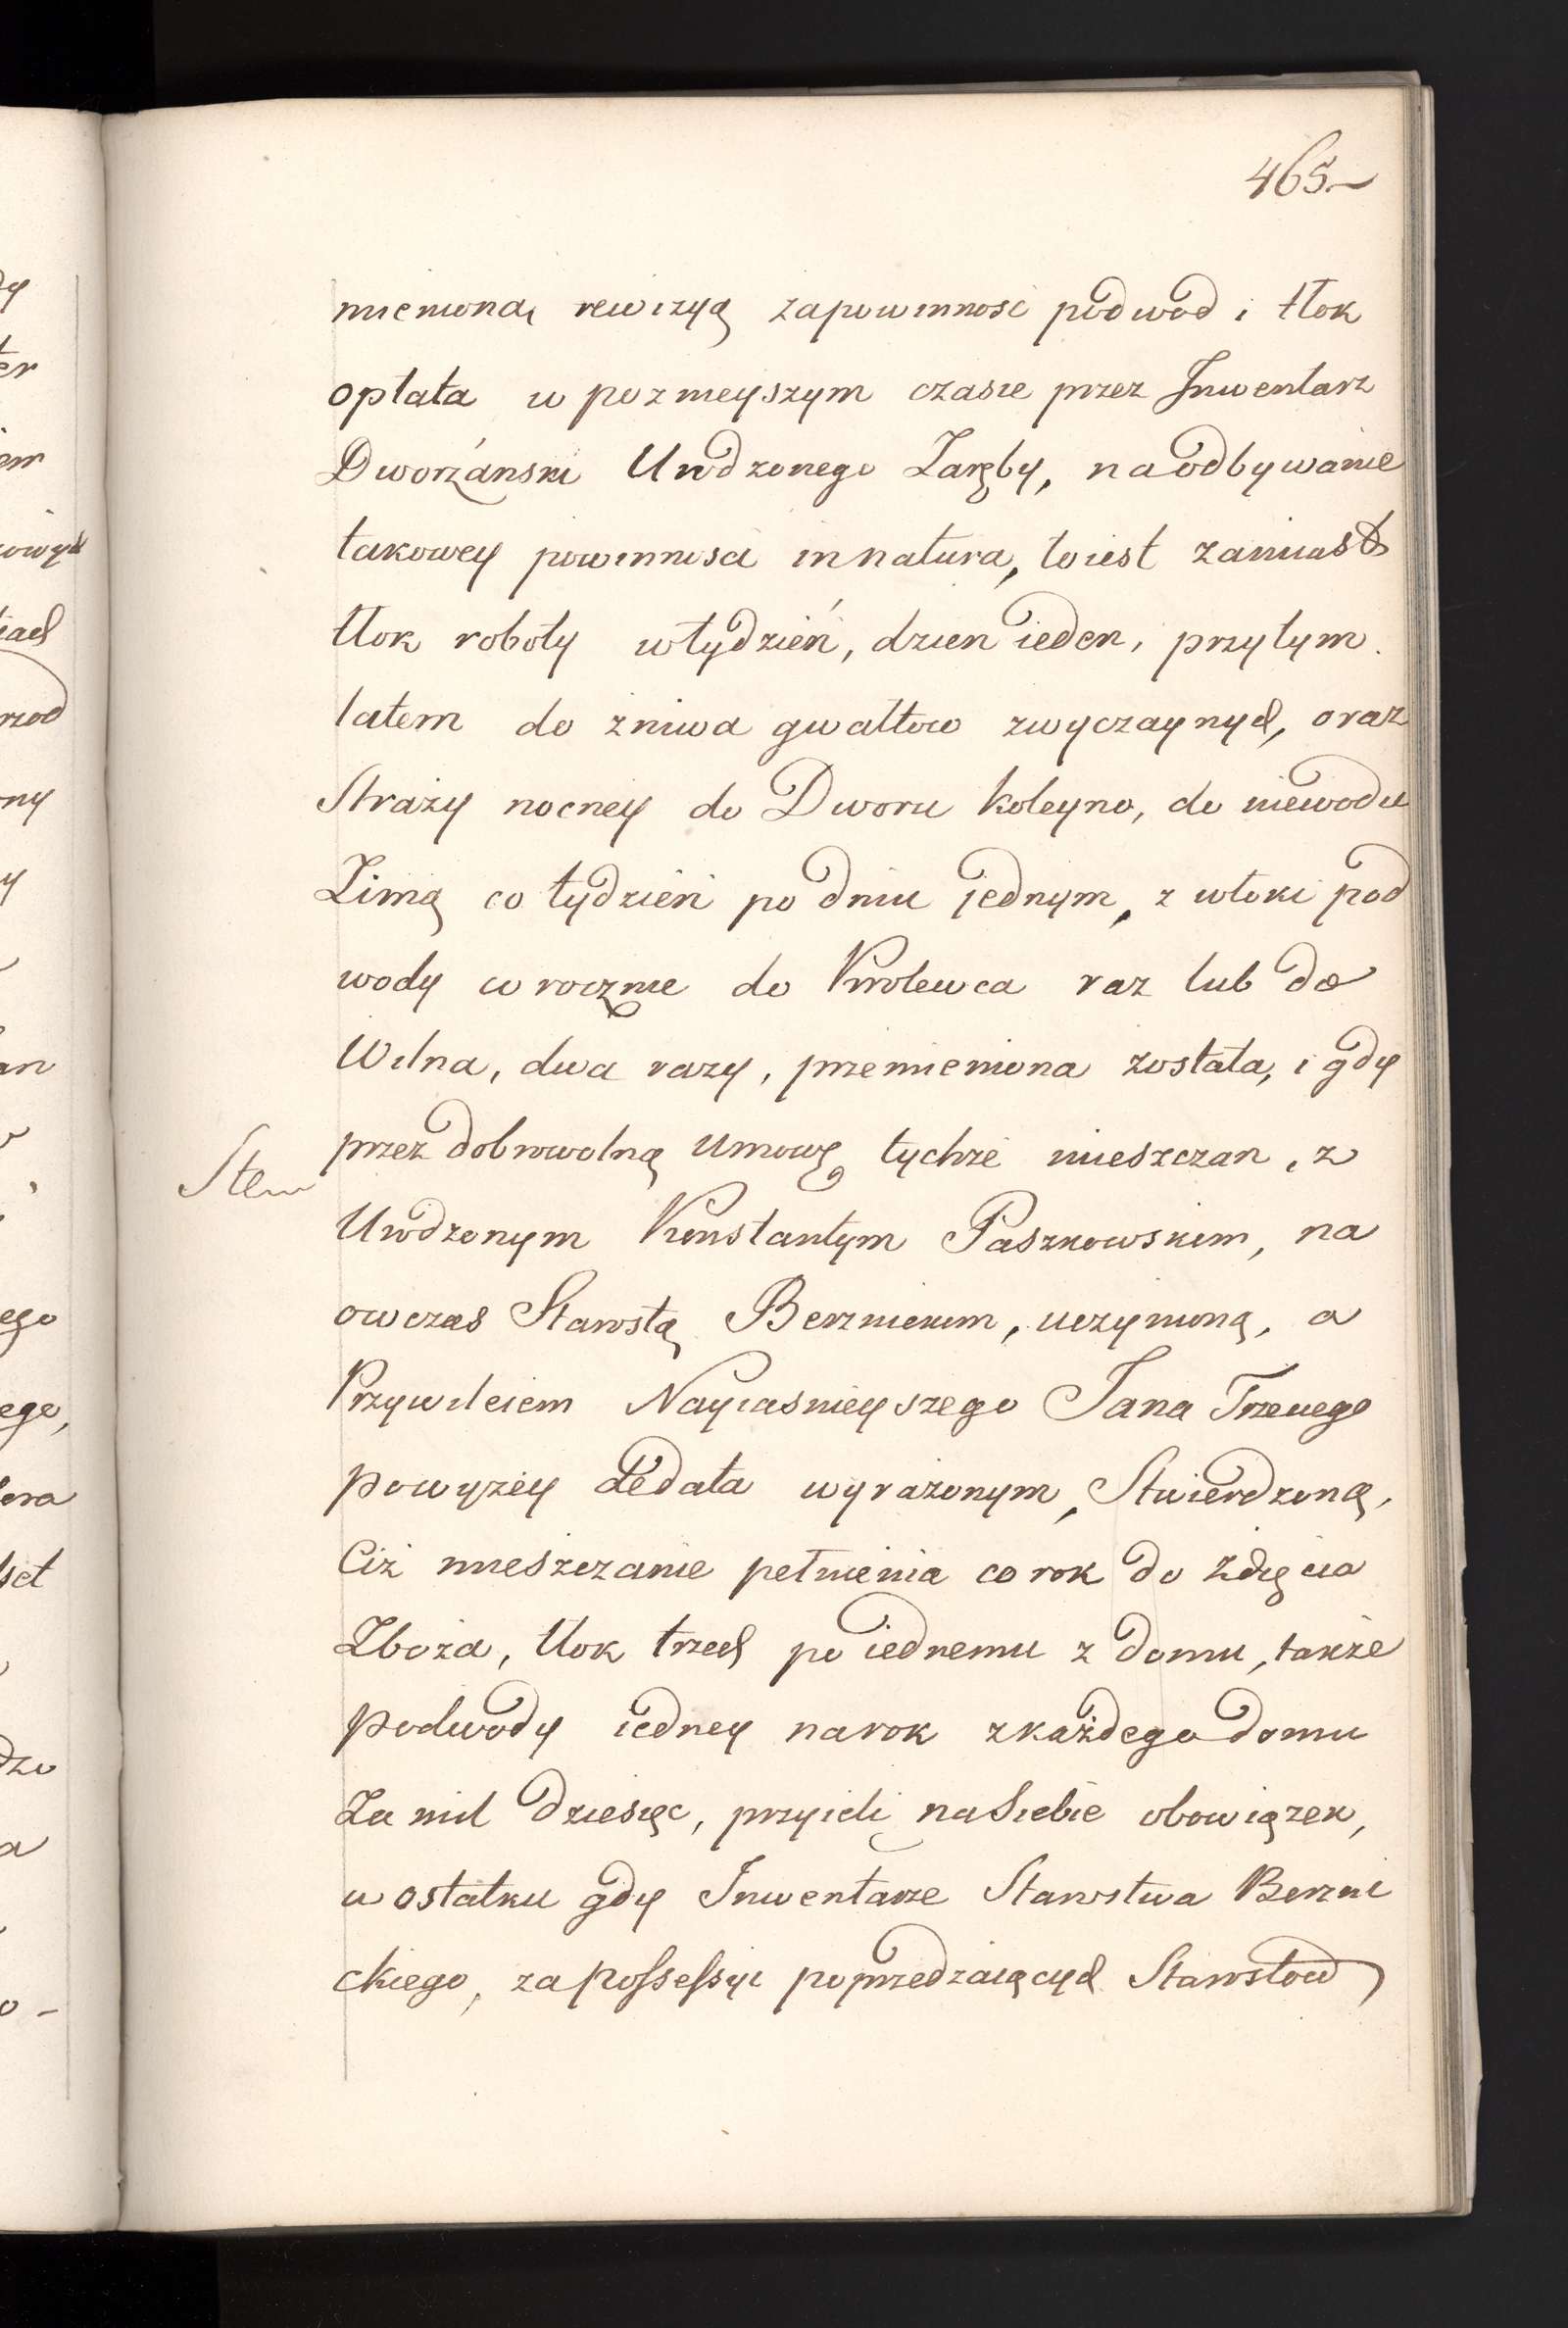 465
mienioną rewizyą zapowinność podwod i tłok
opłata w poznieyszym czasie przez Jnwentarz
Dworzánski Urodzonego Zaręby, na odbywanie
takowey powinnosci innatura, toiest zamiast
tłok roboty wtydzień, dzien ieden, przytym
latem do żniwa gwałtow zwyczaynych, oraz
Straży nocney do Dworu koleyno, do niewodu
Zimą co tydzień po dniu jednym, z włoki pod
wody w rocznie do Krolewca raz lub do
Wilna, dwa razy, przemieniona została, i gdy
przez dobrowolną umowę tychże mieszczan, z
Urodzonym Konstantym Paszkowskim, na
owczas Starostą Berznickim, uczynioną, a
Przywileiem Nayiasnieyszego Jana Trzeciego
powyżey dedata wyrażonym, Stwierdzoną,
Ciż mieszczanie pełnienia co rok do zdięcia
Zboża, tłok trzech po iednemu z domu, także
podwody iedney narok zkażdego domu
Za mil dziesięc, przyieli na Siebie obowiązek,
w ostatku gdy Jnwentarze Starostwa Berzni
ckiego, za possessyi poprzedzaiących Starostow